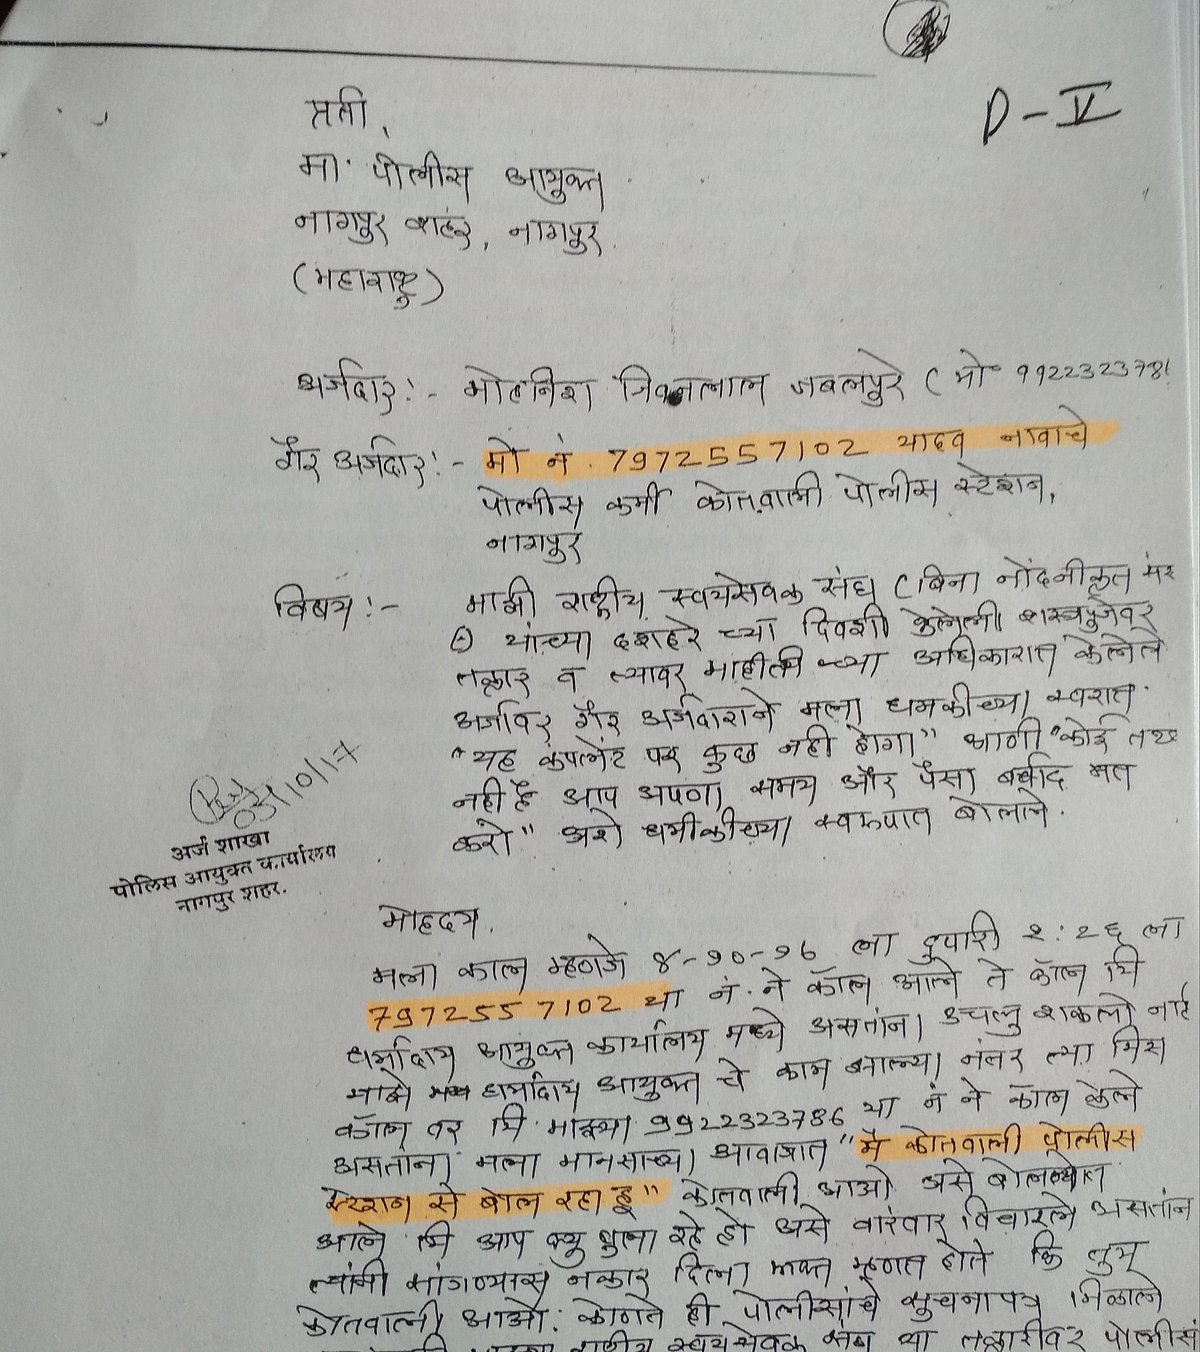 D-V
प्रती,
मा. पोलीस आयुक्त
नागपुर शहर, नागपुर
(महाराष्ट्र)
अर्जदार:- मोहनिश जिवनलाल जबलपुरे (मो 9922323786
गैर अर्जदार:- मो नं. 7972557102 यादव नावाचे
पोलीस कर्मी कोतवाली पोलीस स्टेशन,
नागपुर
विषय:- माझी राष्ट्रीय स्वयंसेवक संघ (बिना नोंदनीकृत संस्
था) यांच्या दशहरे च्या दिवशी केलेली शस्त्रपुजेवर
तक्रार व त्यावर माहीती च्या अधिकारात केलेले
अर्जावर गैर अर्जदाराने मला धमकीच्या स्वरात
"यह कंपलेंट पर कुछ नही होगा" आणी "कोई तथ्य
नही है आप अपना समय और पैसा बर्बाद मत
करो" अशे धमीकीच्या स्वरुपात बोलाने.
03/10/17
अर्ज शाखा
पोलिस आयुक्त कार्यालय
नागपुर शहर.
मोहदय,
मला काल म्हणजे ४-१०-१६ ला दुपारी २:२६ ला
7972557102 या नं. ने कॉल आले ते कॉल मि
धर्मादाय आयुक्त कार्यालय मध्ये असतांना उचलु शकलो नाहि
माझे धर्मादाय आयुक्त चे काम झाल्या नंतर त्या मिस
कॉल वर मि माझ्या 9922323786 या नं ने कॉल केले
असतांना मला माणसाच्या आवाजात "मै कोतवाली पोलीस
स्टेशन से बोल रहा हु" कोतवाली आओ असे बोलण्यात
आले मि आप क्यु बुला रहे हो असे वारंवार विचारले असतांना
त्यांनी सांगण्यास नकार दिला फक्त म्हणत होते कि तुम
कोतवाली आओ. कोणते ही पोलीसांचे सुचनापत्र मिळाले
राष्ट्रीय स्वयंसेवक संघ च्या तक्रारीवर पोलीस